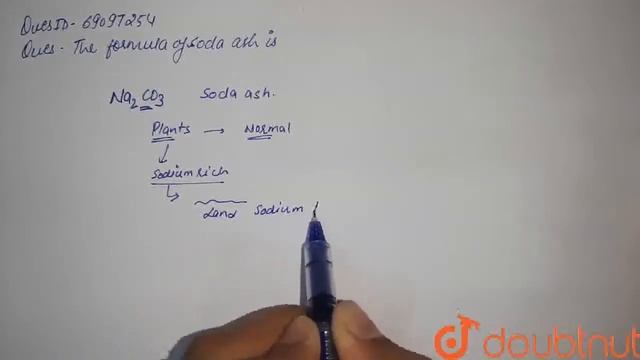 Ques ID - 69097254
Ques - The formula of soda ash is
Na2CO3 Soda ash.
Plants → Normal
Sodium rich
Land Sodium
doubtnut